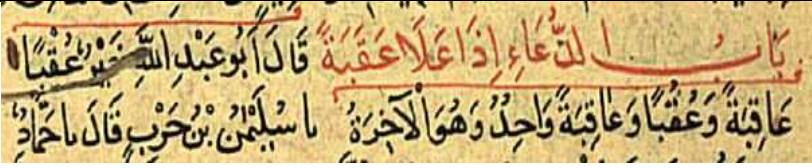 بَابُ الدُّعَاءِ إِذَا عَلَا عَقَبَةً قَالَ أَبُو عَبْدِ اللَّهِ خَيْرٌ عُقْبًا
عَاقِبَةً وَعُقُبًا وَعَاقِبَةً وَاحِدٌ وَهُوَ الْآخِرَةُ نا سُلَيْمٰنُ بْنُ حَرْبٍ قَالَ نا حَمَّادٌ